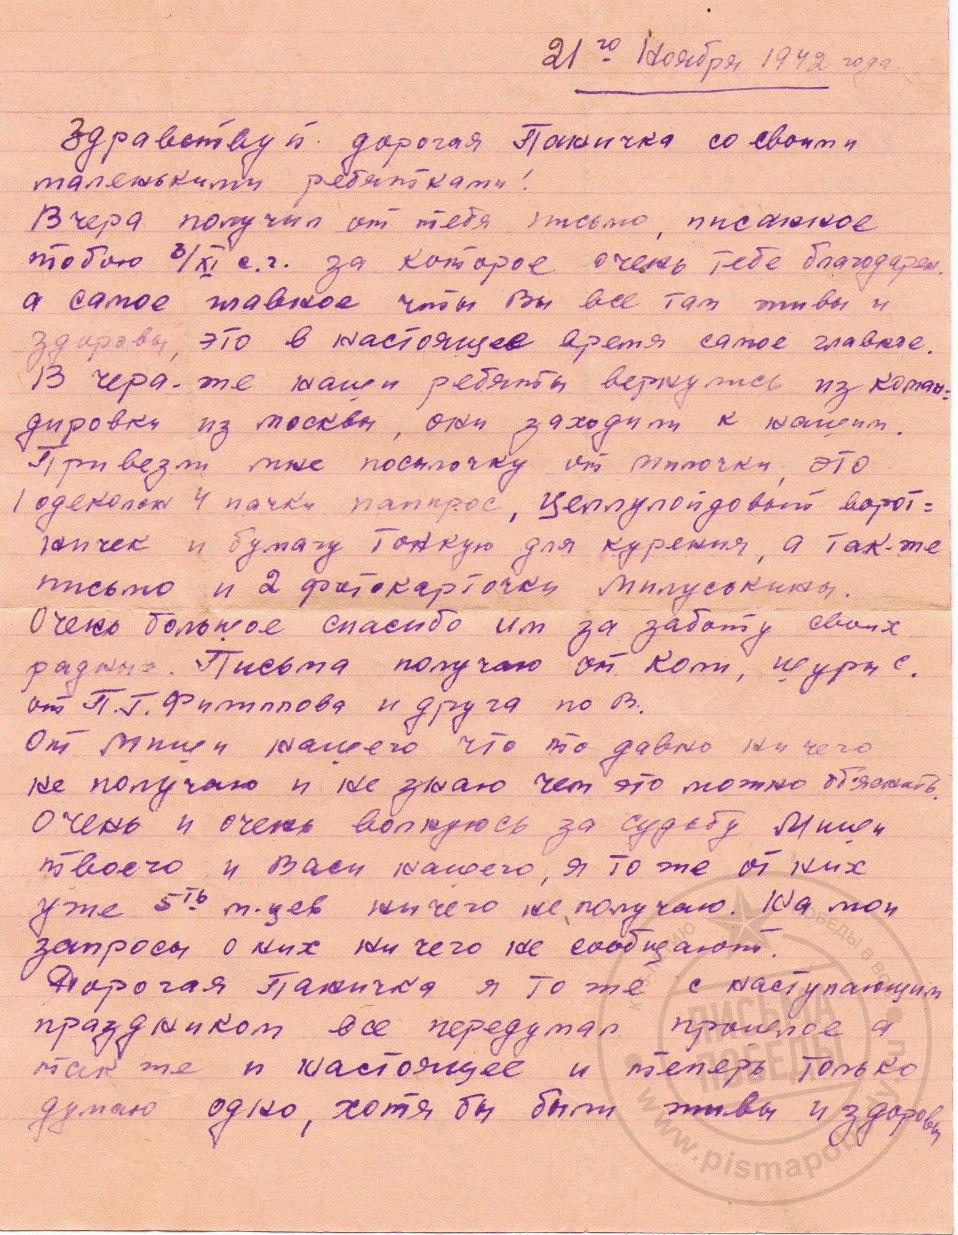 21го Ноября 1942 года.
Здравствуй дорогая Паничка со своими
маленькими ребятками!
Вчера получил от тебя письмо, писанное
тобою 3/XI с.г. за которое очень тебе благодарен.
а самое главное что Вы все там живы и
здоровы, это в настоящее время самое главное.
В чера-же наши ребяты вернулись из коман-
дировки из москвы, они заходили к нашим.
Привезли мне посылочку от Милочки, это
1 одеколон 4 пачки папирос, целлулойдовый ворот=
ничек и бумагу тонкую для курения, а так-же
письмо и 2 фотокарточки Милуськины.
Очень большое спасибо им за заботу своих
радных. Письма получаю от Коли, Шуры С.
от П.Г. Филиппова и друга по В.
От Миши нашего что то давно ни чего
не получаю и не знаю чем это можно об'яснить.
Очень и очень волнуюсь за судьбу Миши
твоего и Васи нашего, я то же от них
уже 5ть м-цев ничего не получаю. На мои
запросы о них ни чего не сообщают.
Дорогая Паничка я то же с наступающим
праздником все передумал прошлое а
так же и настоящее и теперь только
думаю одно, хотя бы были живы и здоровы
ПИСЬМА
ПОБЕДЫ